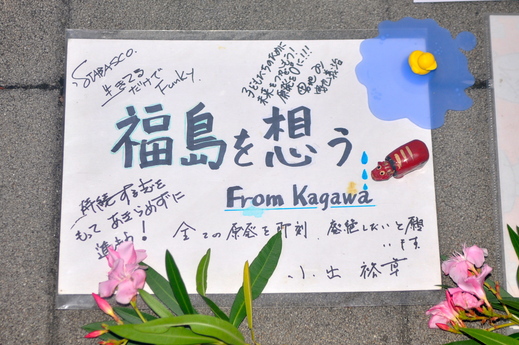 STABASCO.
生きてる
だけで
Funky.
子どもたちのために
未来をつなぼう!
原発0に!!!
福島を想う
From Kagawa
持続する志を
もって あきらめずに
進もう!
全ての原発を即刻、廃絶したいと願
います。
小出 裕章